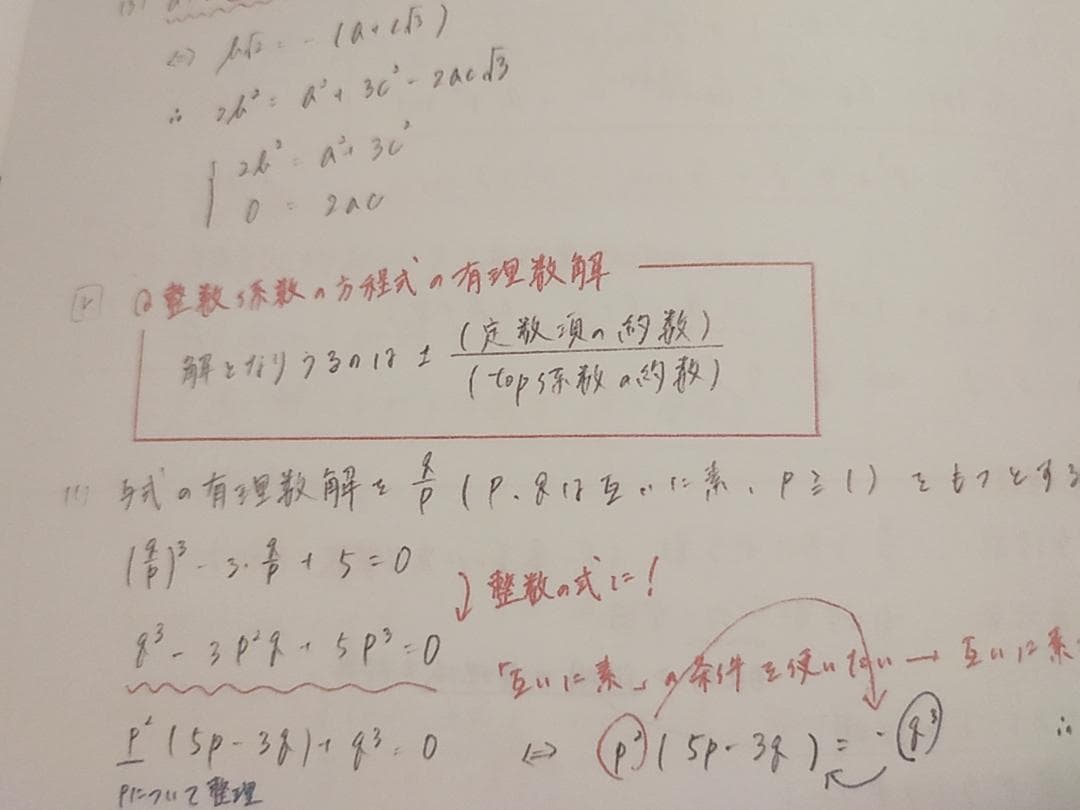 (3)
⇔ b√2 = - (a + c√3)
∴ 2b² = a² + 3c² - 2ac√3
2b² = a² + 3c²
0 = 2ac
整数係数の方程式の有理数解
解となりうるのは ± (定数項の約数)/(top係数の約数)
(1) 与式の有理数解を q/p (p、qは互いに素、p≧1) をもつとする
(q/p)³ - 3・q/p + 5 = 0
整数の式に!
q³ - 3p²q + 5p³ = 0
「互いに素」の条件を使いたい → 互いに素
p²(5p - 3q) + q³ = 0 ⇔ p²(5p - 3q) = -q³ ∴
pについて整理